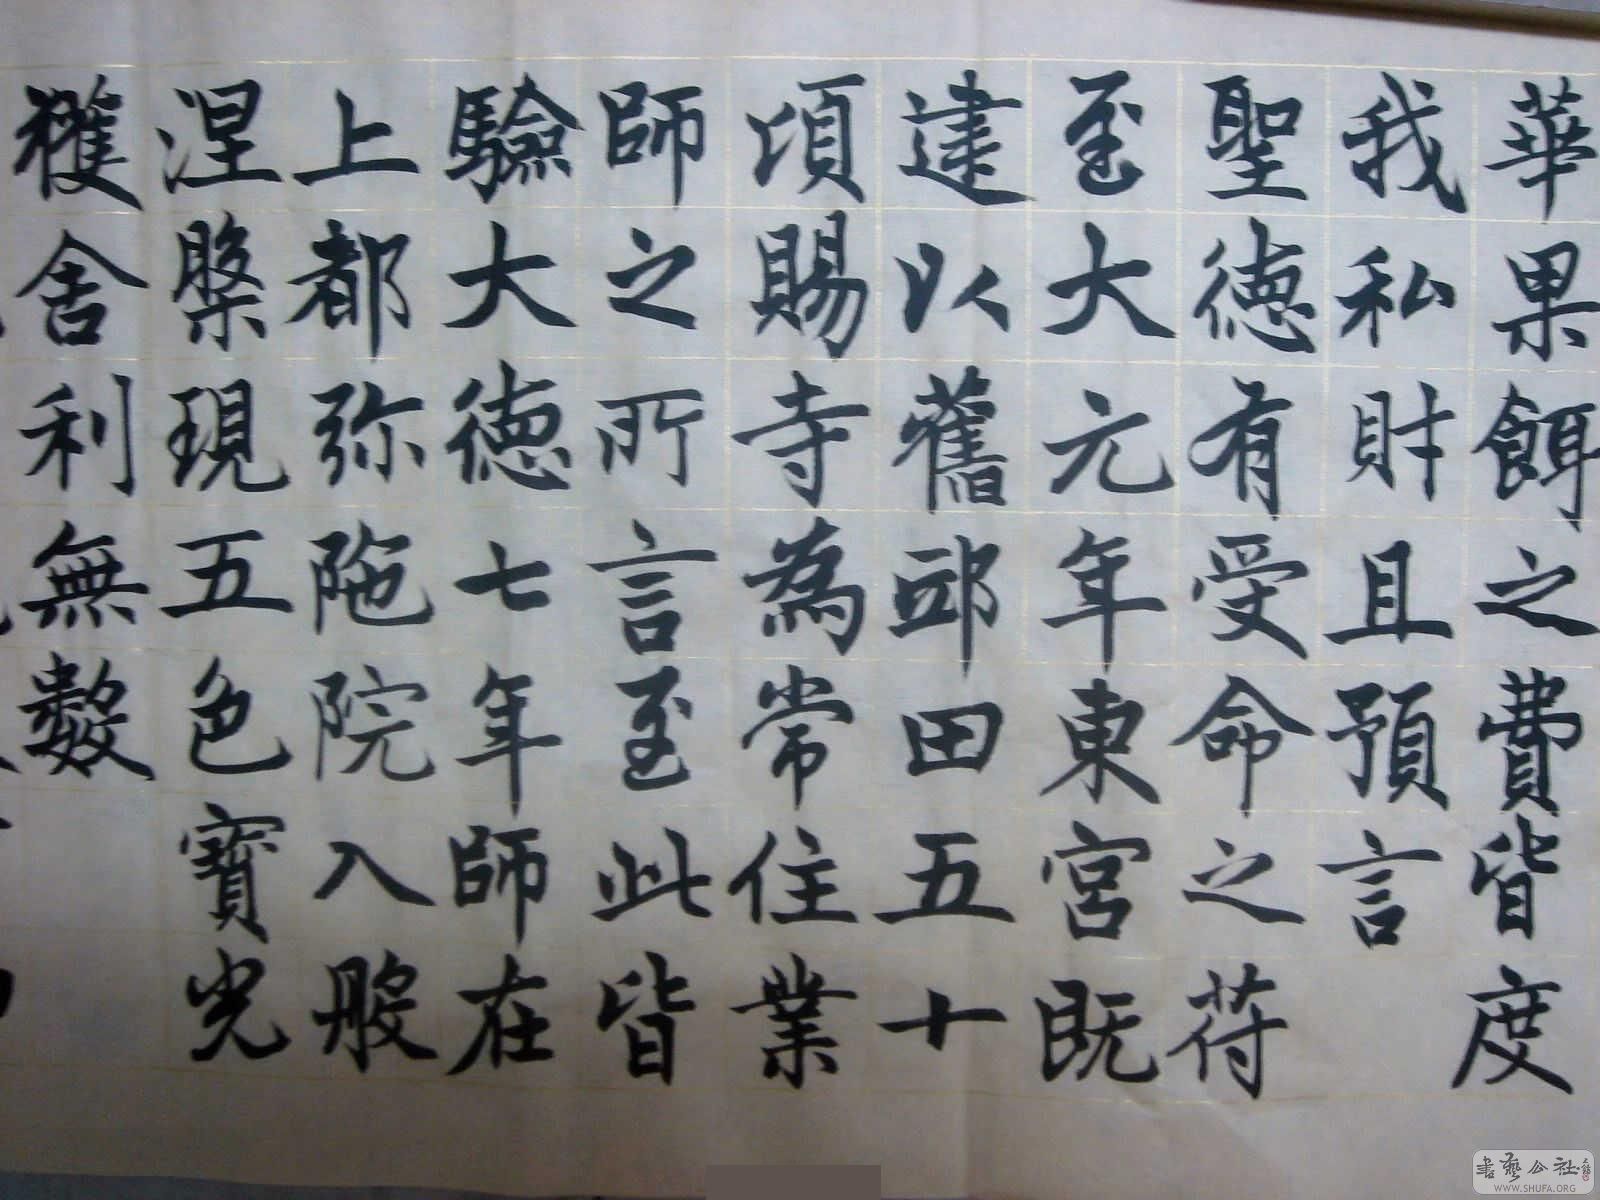 華果餌之費皆度
我私財且預言
聖德有受命之符
至大元年東宮既
建以舊邸田五十
頃賜寺為常住業
師之所言至此皆
驗大德七年師在
上都弥陁院入般
涅槃現五色寶光
獲舍利無數
書藝公社
WWW.SHUFA.ORG